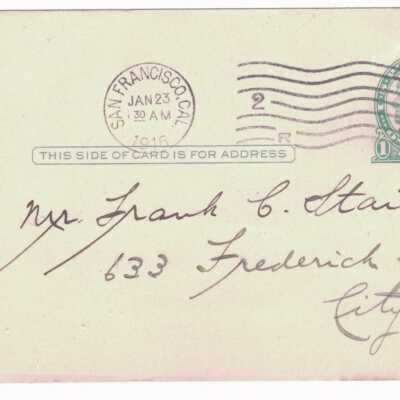 SAN FRANCISCO, CAL.
JAN 23
30 AM
1916
2
R
1
THIS SIDE OF CARD IS FOR ADDRESS
Mr. Frank C. Stai
633 Frederick
City